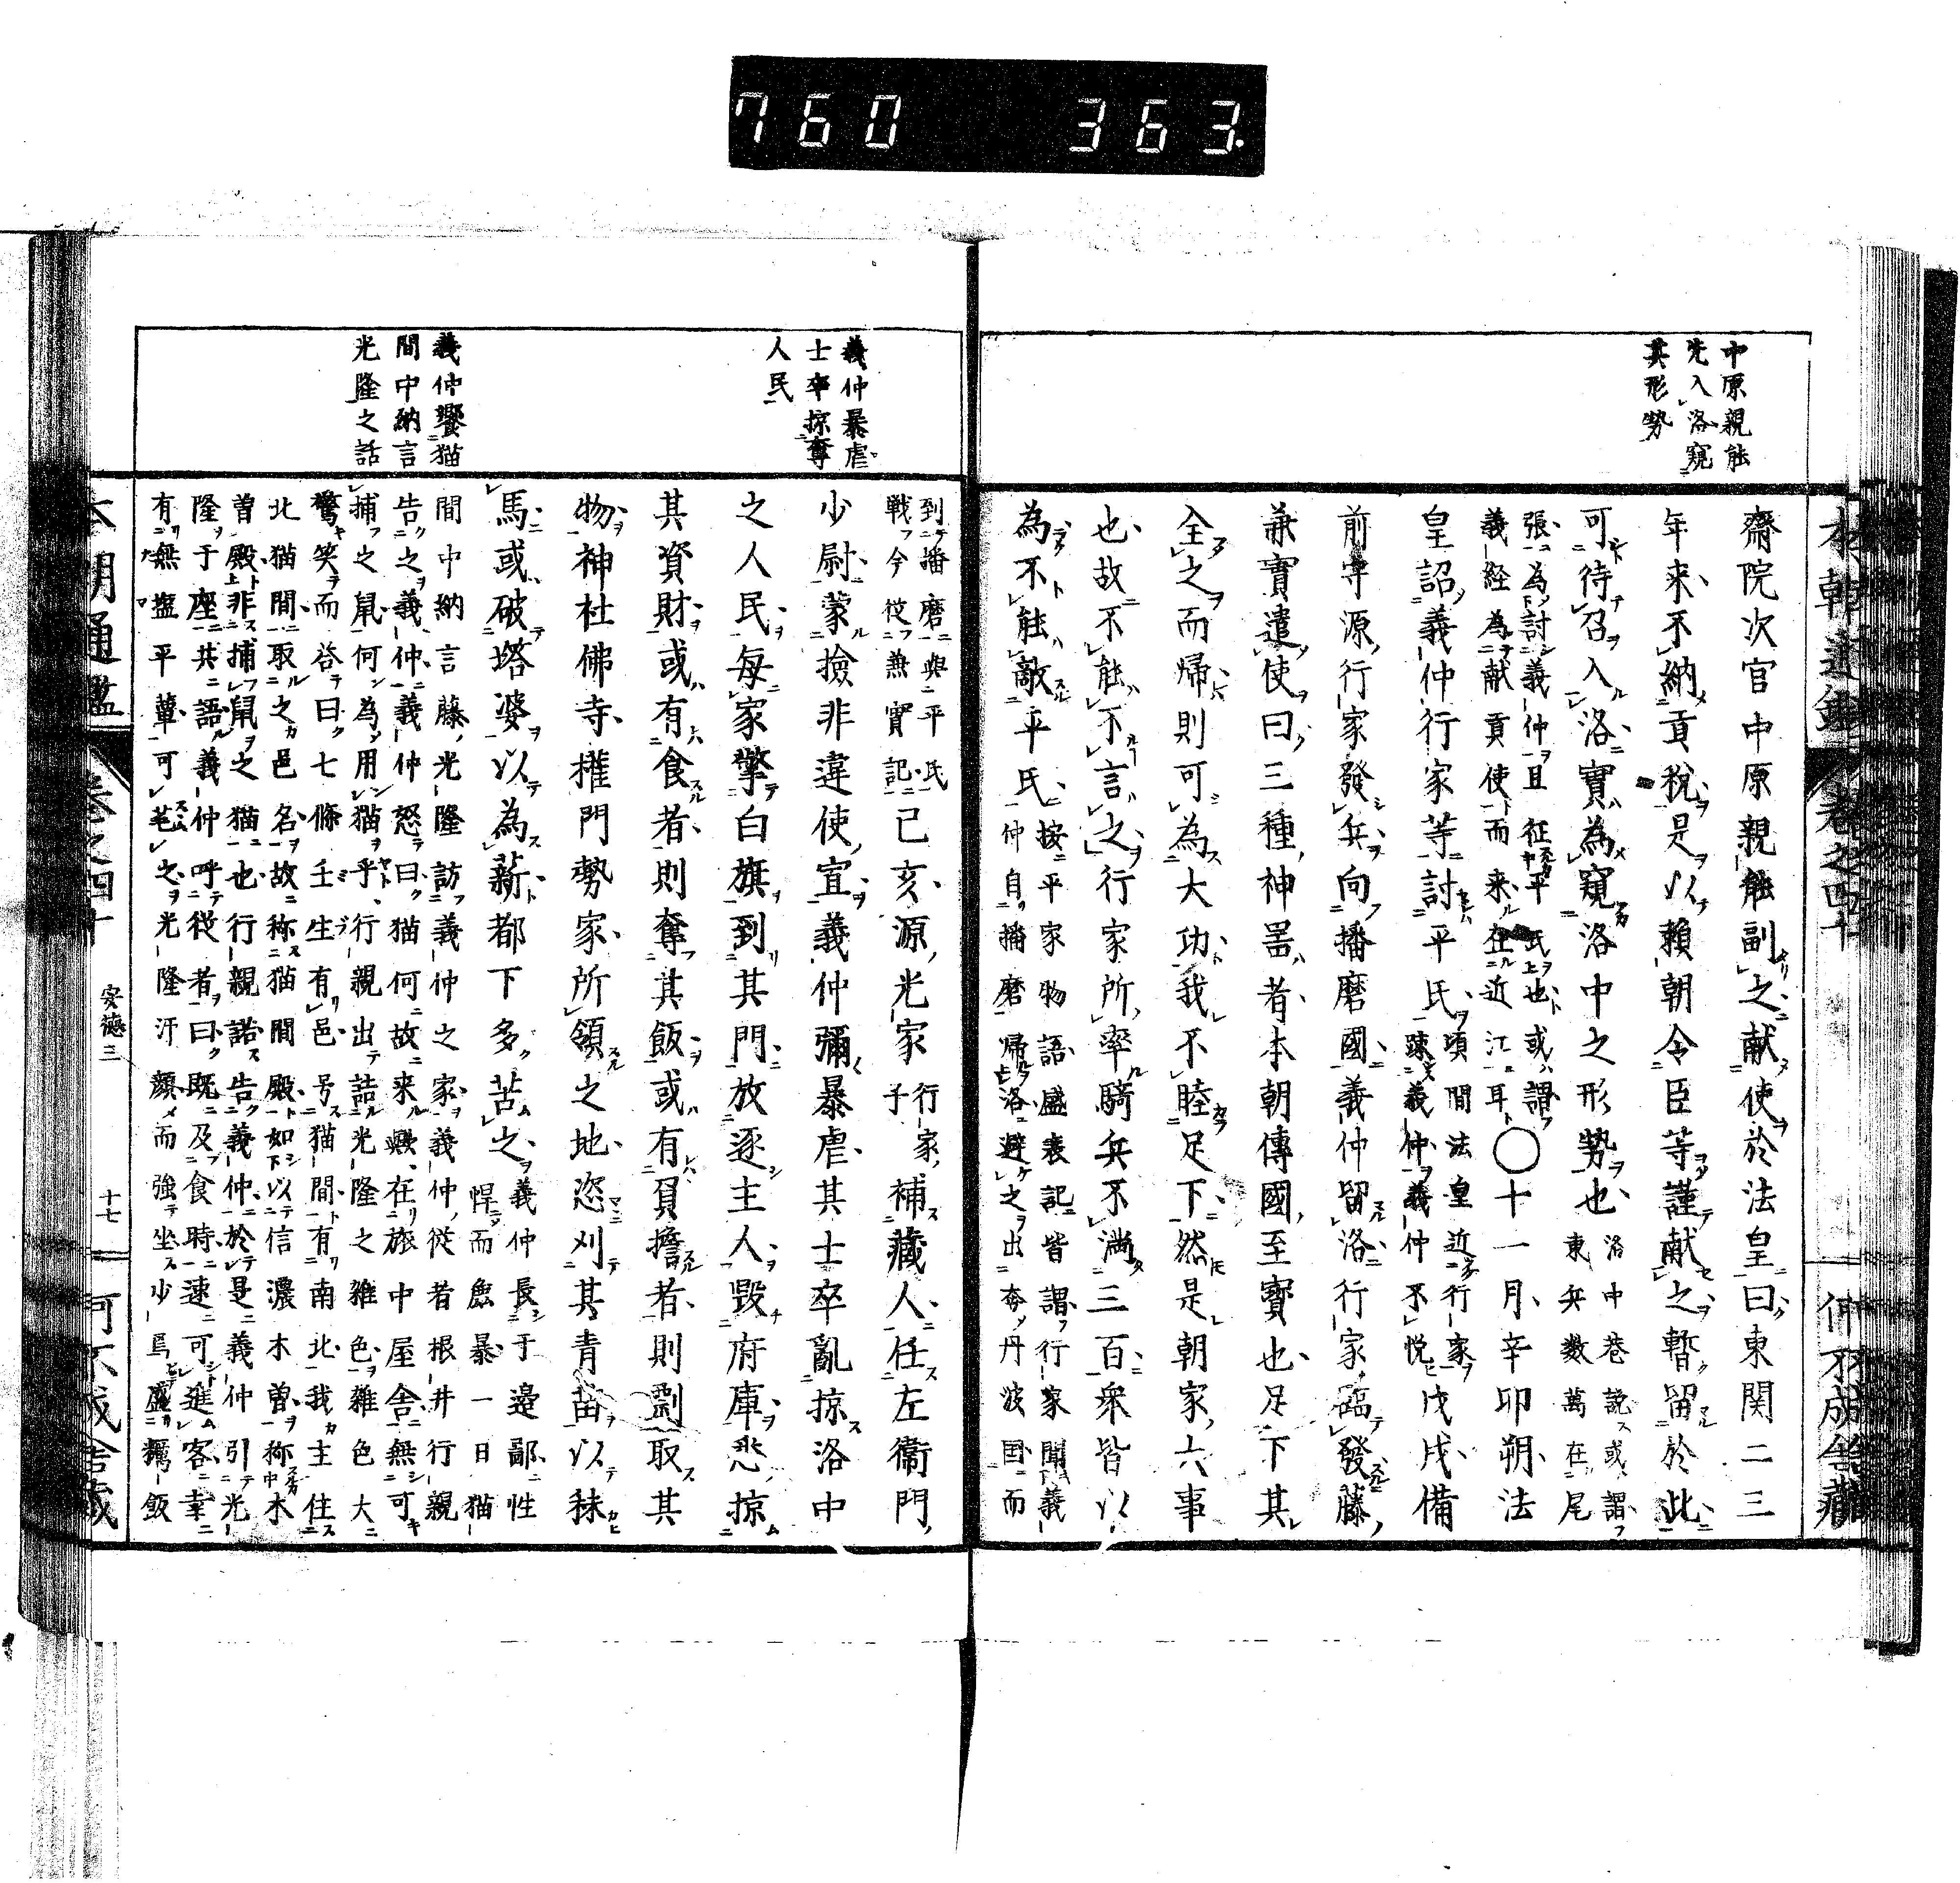 760 363.
本朝通鑑 卷之四十
中原親能
先入洛窺
其形勢
齋院次官中原親能副之献使於法皇曰東関二三
年来不納貢税是以頼朝令臣等謹献之暫留於此
可待召入洛實為窺洛中之形勢也洛中巷説或謂
東兵数萬在尾
張為討義仲且征平氏也或謂
義経為献貢使而来在近江耳〇十一月辛卯朔法
皇詔義仲行家等討平氏頃間法皇近行家
疎義仲義仲不悦戊戌備
前守源行家發兵向播磨國義仲留洛行家臨發藤
兼實遣使曰三種神噐者本朝傳國至寳也足下其
全之而帰則可為大功我不睦足下然是朝家六事
也故不能不言之行家所率騎兵不満三百衆皆以
為不能敵平氏按平家物語盛衰記皆謂行家聞義
仲自播磨帰洛避之出奔丹波国而
義仲暴虐
士卒掠奪
人民
義仲饗猫
間中納言
光隆之話
到播磨與平氏
戦今從兼實記己亥源光家行家
子補蔵人任左衞門
少尉蒙撿非違使宣義仲彌暴虐其士卒亂掠洛中
之人民毎家擎白旗到其門放逐主人毀府庫悉掠
其資財或有食者則奪其飯或有負擔者則劉取其
物神社佛寺權門勢家所領之地恣刈其青苗以秣
馬或破塔婆以為薪都下多苦之義仲長于邉鄙性
悍而麁暴一日猫
間中納言藤光隆訪義仲之家義仲從者根井行親
告之義仲義仲怒曰猫何故来歟在旅中屋舎無可
捕之鼠何為用猫乎行親出詰光隆之雜色雜色大
驚笑而咨曰七條壬生有邑号猫間有南北我主住
北猫間取之邑名故称猫間殿如下以信濃木曽称中木
曽殿上非捕鼠之猫也行親諾告義仲於是義仲引光
隆于座共語義仲呼従者曰既及食時速可進客幸
有無塩平蕈可芼之光隆汙顔而強坐少焉盛飯
本朝通鑑 卷之四十 安徳三 十七